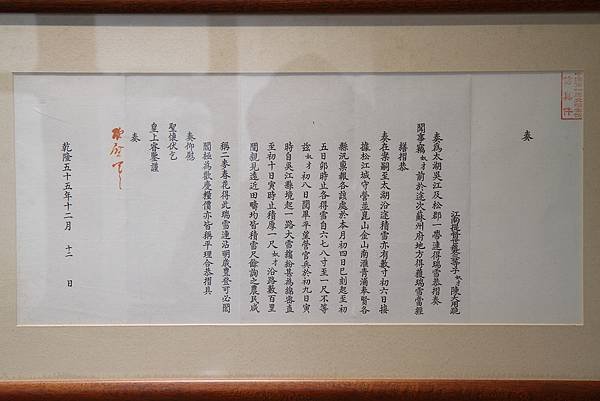 奏
江南提督世襲三等子奴才陳大用跪
奏為太湖吳江及松郡一帶連得瑞雪恭摺奏
聞事竊奴才前於途次蘇州府地方得獲瑞雪當經
繕摺恭
奏在案嗣至太湖沿途積雪亦有數寸初六日接
據松江城守營並崑山金山南滙青浦奉賢各
縣汛稟報各該處於本月初四日巳刻起至初
五日卯時止各得雪自六七八寸至一尺不等
茲奴才初八日閱畢平望營官兵於初九日寅
時自吳江縣境起一路大雪繽紛甚為綿密直
至初十日寅時止積厚一尺奴才沿路數百里
間親見遠近田疇均皆積雪尺餘詢之農民咸
稱二麥春花得此瑞雪連沾明歲豐登可必閭
閻極為歡慶糧價亦皆稱平理合恭摺具
奏仰慰
聖懷伏乞
皇上睿鑒謹
奏
乾隆五十五年十二月 十二 日